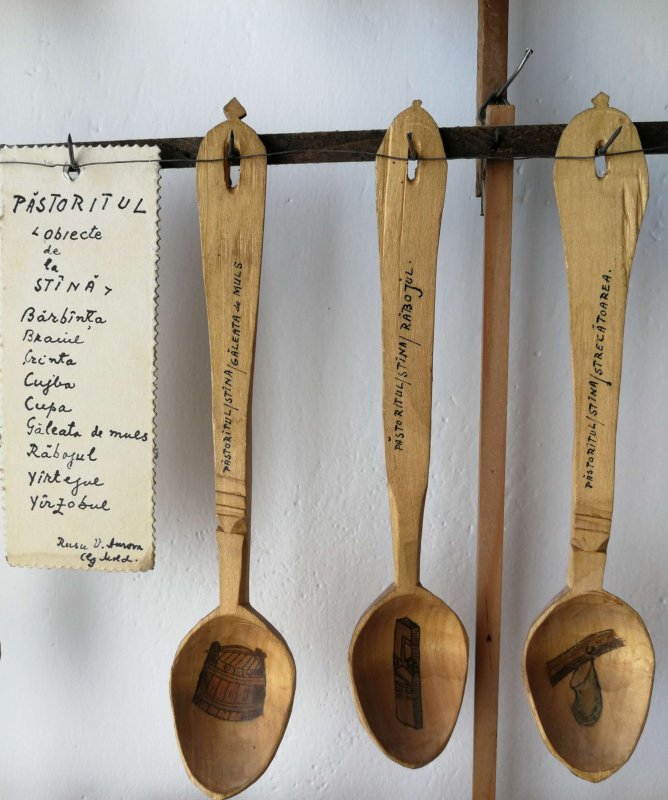 PĂSTORITUL
< OBIECTE
de
la
STÎNĂ >
Bărbînța
Braiul
Crinta
Cujba
Cupa
Găleata de muls
Răbojul
Vîrtejul
Vîrzobul
Rusu V. Aurora
PĂSTORITUL/STÎNA/GĂLEATA de MULS
PĂSTORITUL/STÎNA/RĂBOJUL.
PĂSTORITUL/STÎNA/STRECĂTOAREA.